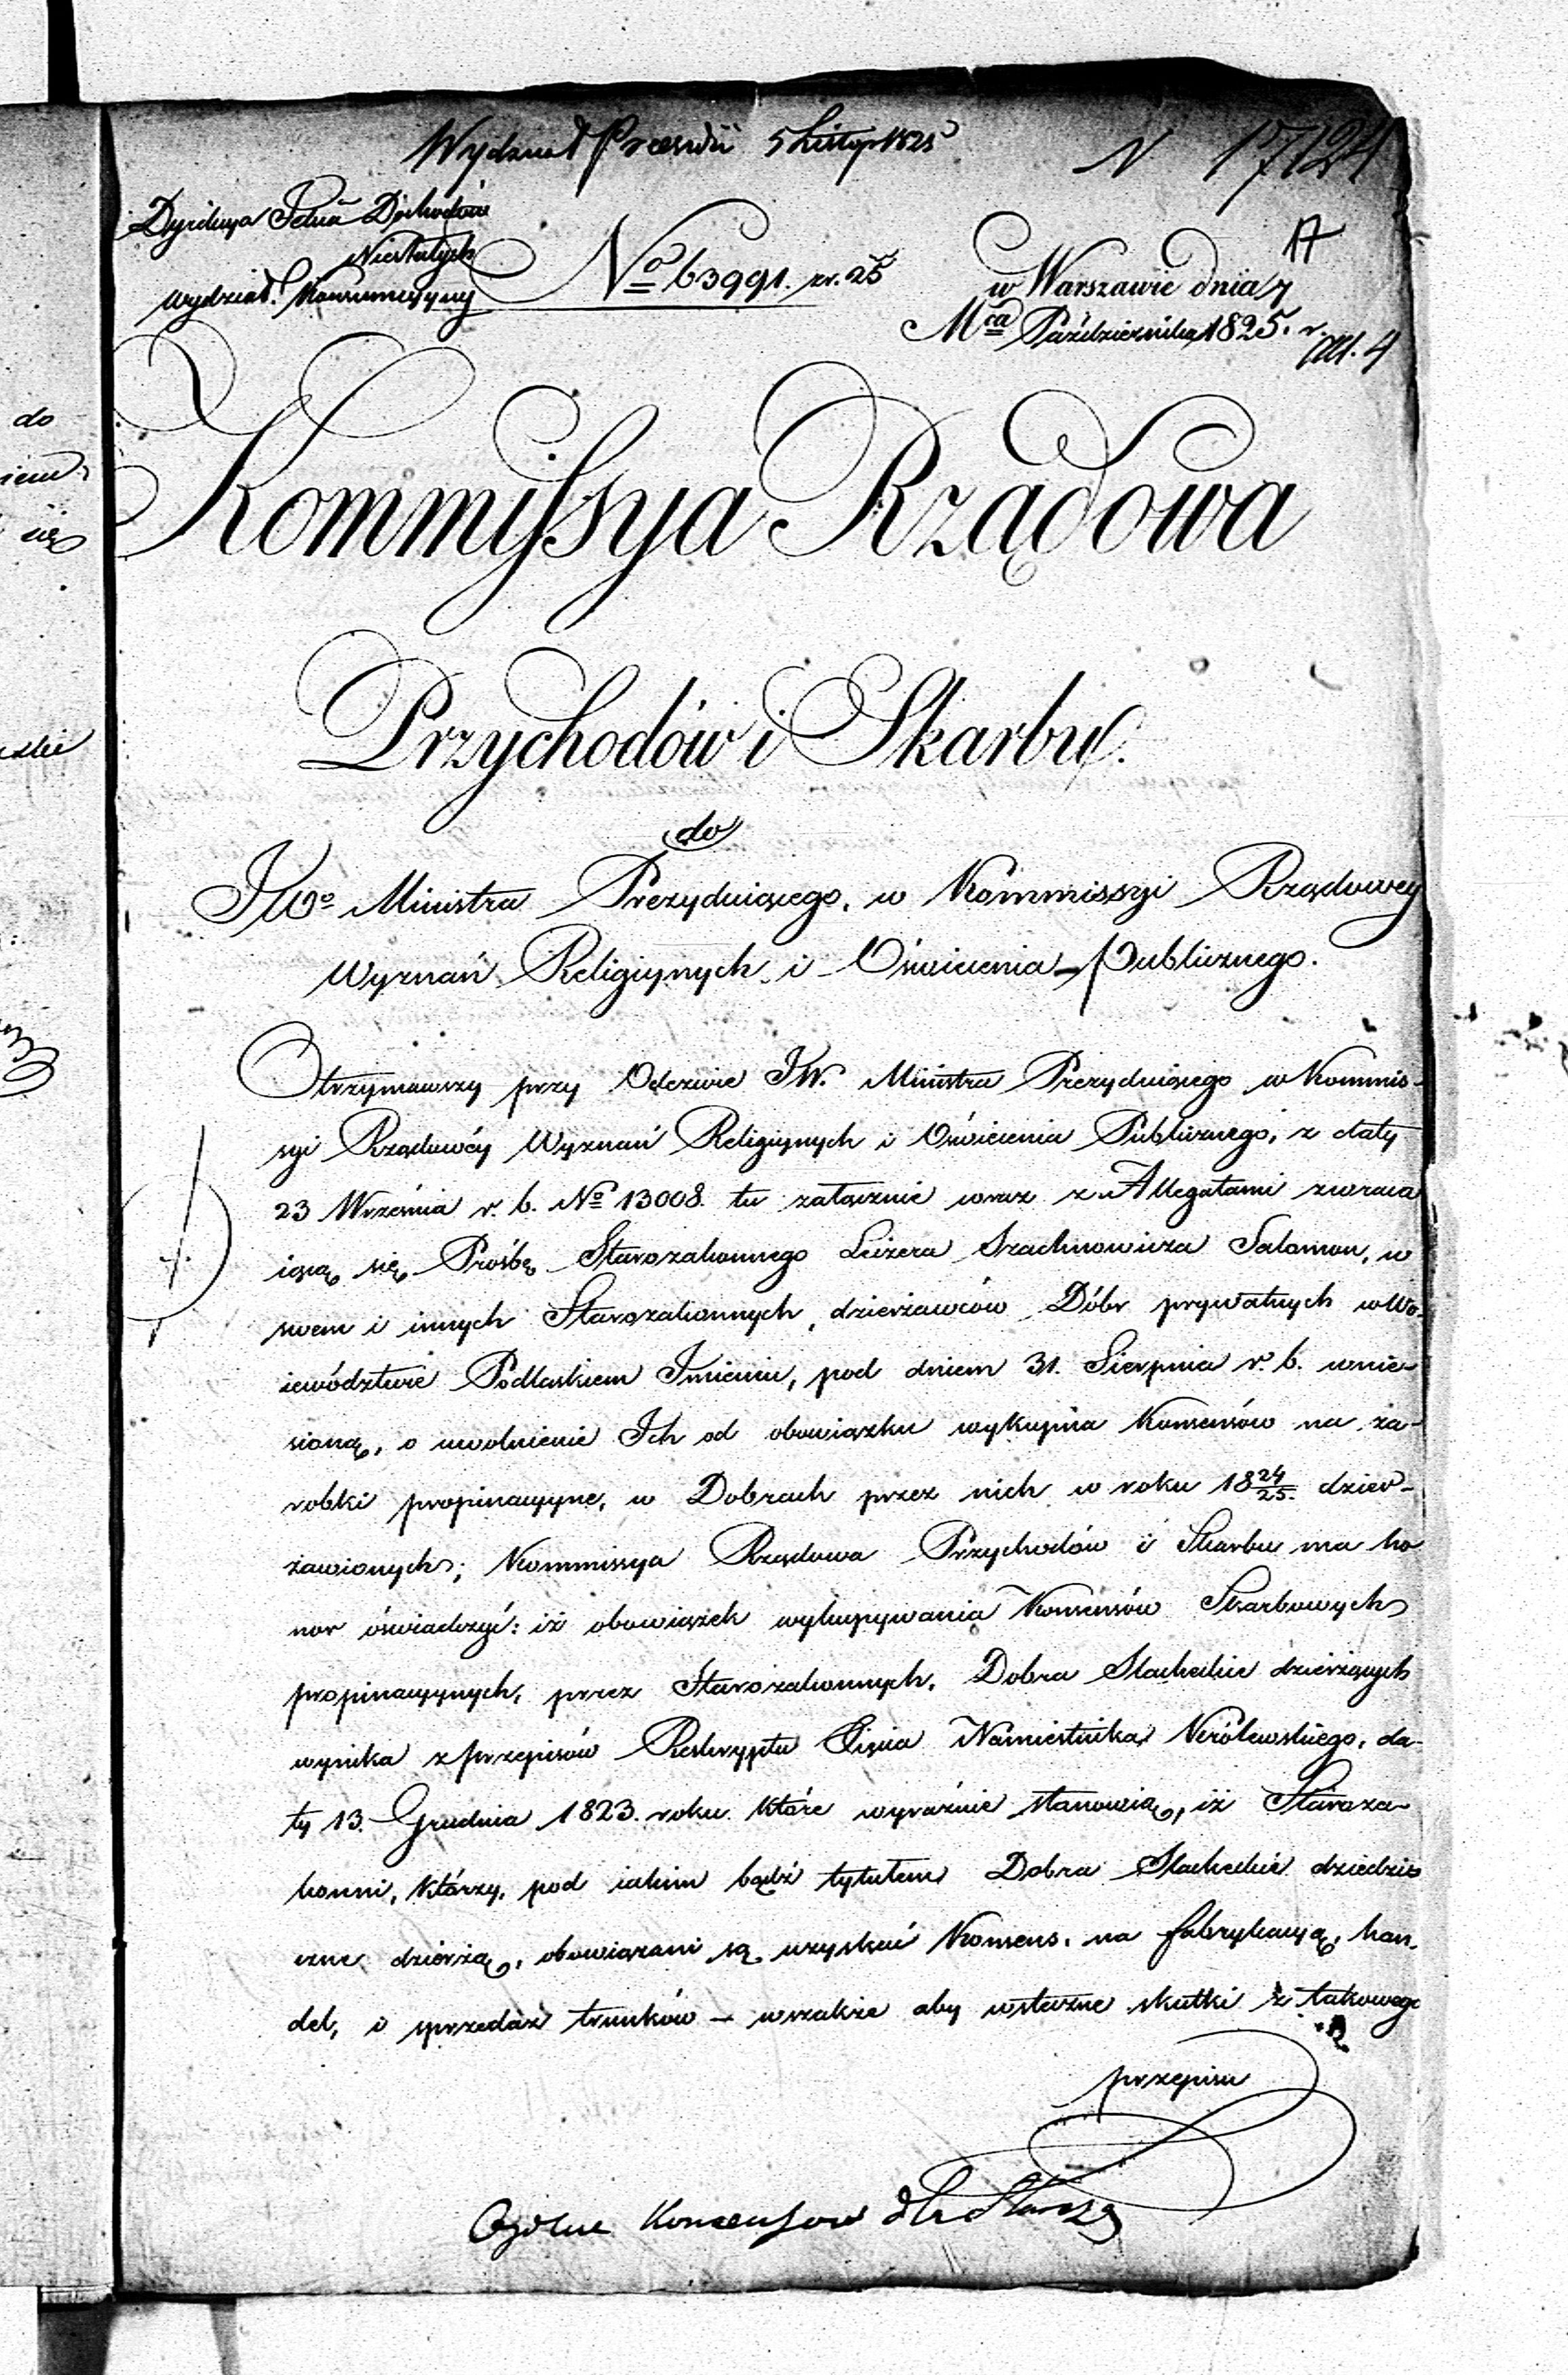 5 Listop 1825
N 17124
Dyrekcya Dochodów
Niestałych
Wydział Konsumcyyny
No 63991. zr. 25
A
w Warszawie dnia 7
Mca Października 1825. r.
Kommissya Rządowa
Przychodów i Skarbu.
do
JWo Ministra Prezyduiącego, w Kommissyi Rządowey
Wyznań Religiynych i Oświecenia Publicznego.
Otrzymawszy przy Odezwie JW. Ministra Prezyduiącego w Kommis-
syi Rządowéy Wyznań Religiynych i Oświecenia Publicznego, z daty
23 Września r. b. No 13008. tu załącznie wraz z Allegatami zwraca
iącą się Prośbę Starozakonnego Leizera Szachnowicza Salomon, w
swem i innych Starozakonnych, dzierżawców Dóbr prywatnych w Wo-
iewództwie Podlaskiem Imieniu, pod dniem 31. Sierpnia r. b. wnie-
sioną, o uwolnienie Ich od obowiązku wykupna Konsensów na za-
robki propinacyyne, w Dobrach przez nich w roku 1824/25. dzier-
żawionych; Kommissya Rządowa Przychodów i Skarbu ma ho
nor oświadczyć: iż obowiązek wykupywania Konsensów Skarbowych
propinacyynych, przez Starozakonnych, Dobra Slacheckie dzierżących
wynika z przepisów Reskryptu Xięcia Namiestnika Królewskiego, da-
ty 13. Grudnia 1823. roku które wyraźnie stanowią, iż Staroza-
konni, którzy, pod iakim bądź tytułem Dobra Slacheckie dziedzi-
czne dzierżą, obowiązani są uzyskać Konsens, na fabrykacyą, han-
del, i sprzedaż trunków — wszakże aby wsteczne skutki z takowego
przepisu
Konsensow dla Staroz
do